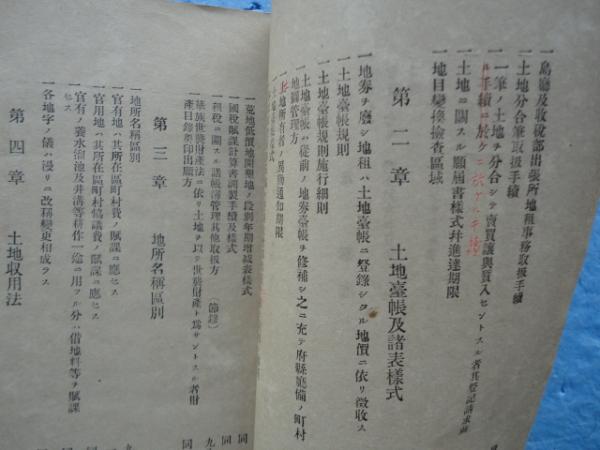 一島廳及收稅部出張所地租事務取扱手續
一土地分合筆取扱手續
一一筆ノ土地ヲ分合シテ賣買讓與質入セントスル者其登記請求
ル手續
一土地ニ關スル願屆書樣式幷進達期限
一地目變換檢査區域
第二章 土地臺帳及諸表樣式
一地券ヲ廢シ地租ハ土地臺帳ニ登錄シタル地價ニ依リ徵收ス
一土地臺帳規則
一土地臺帳規則施行細則
一土地臺帳ハ從前ノ地券臺帳ヲ修補シ之ニ充テ府縣廳備ノ町村
地圖管理方
一土地所有者ノ異動通知期限
一荒地低價地開墾地ノ段別年期增減表樣式
一國稅賦課計算書調製手續及樣式
一租稅ニ關スル諸帳簿管理其他取扱方 (節錄)
一華族世襲財產法ニ依リ土地ヲ以テ世襲財產ト爲サントスル者財
產目錄奧印出願方
第三章 地所名稱區別
一地所名稱區別
一官有地ハ其所在區町村費ノ賦課ニ應セス
一官用地ハ其所在區町村協議費ノ賦課ニ應セス
一官有ノ養水溜池及井溝等耕作一途ニ用フル分ハ借地料等ヲ賦課
セス
一各地字ノ儀ハ漫リニ改稱變更相成ラス
第四章 土地收用法